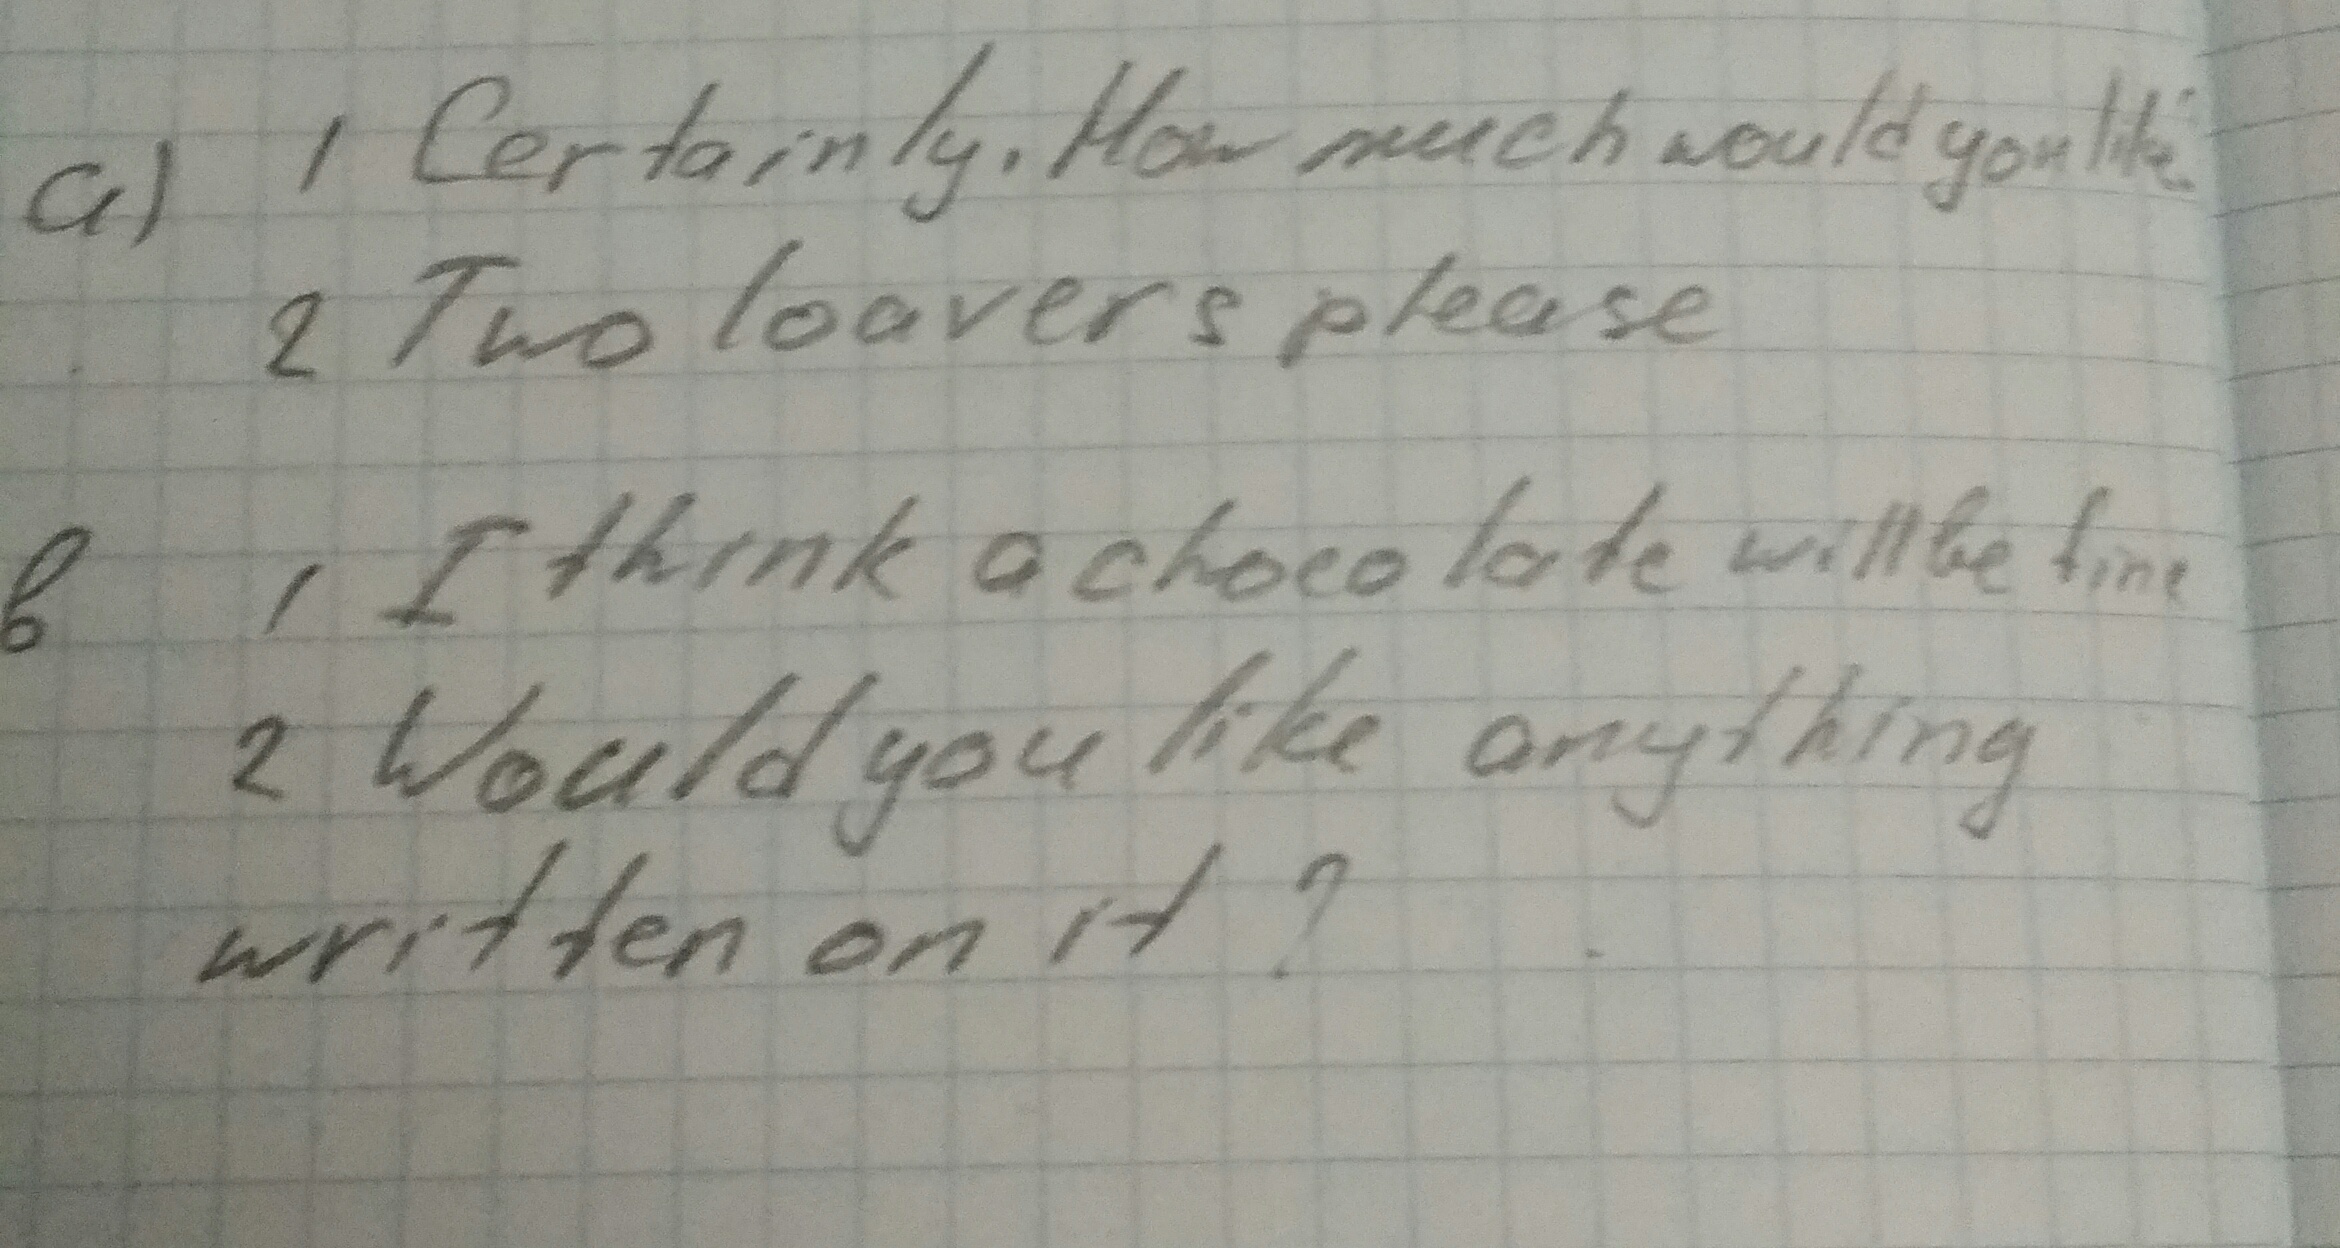 a) 1 Certainly. How much would you like
2 Two loavers please
b 1 I think a chocolate will be fine
2 Would you like anything
written on it?